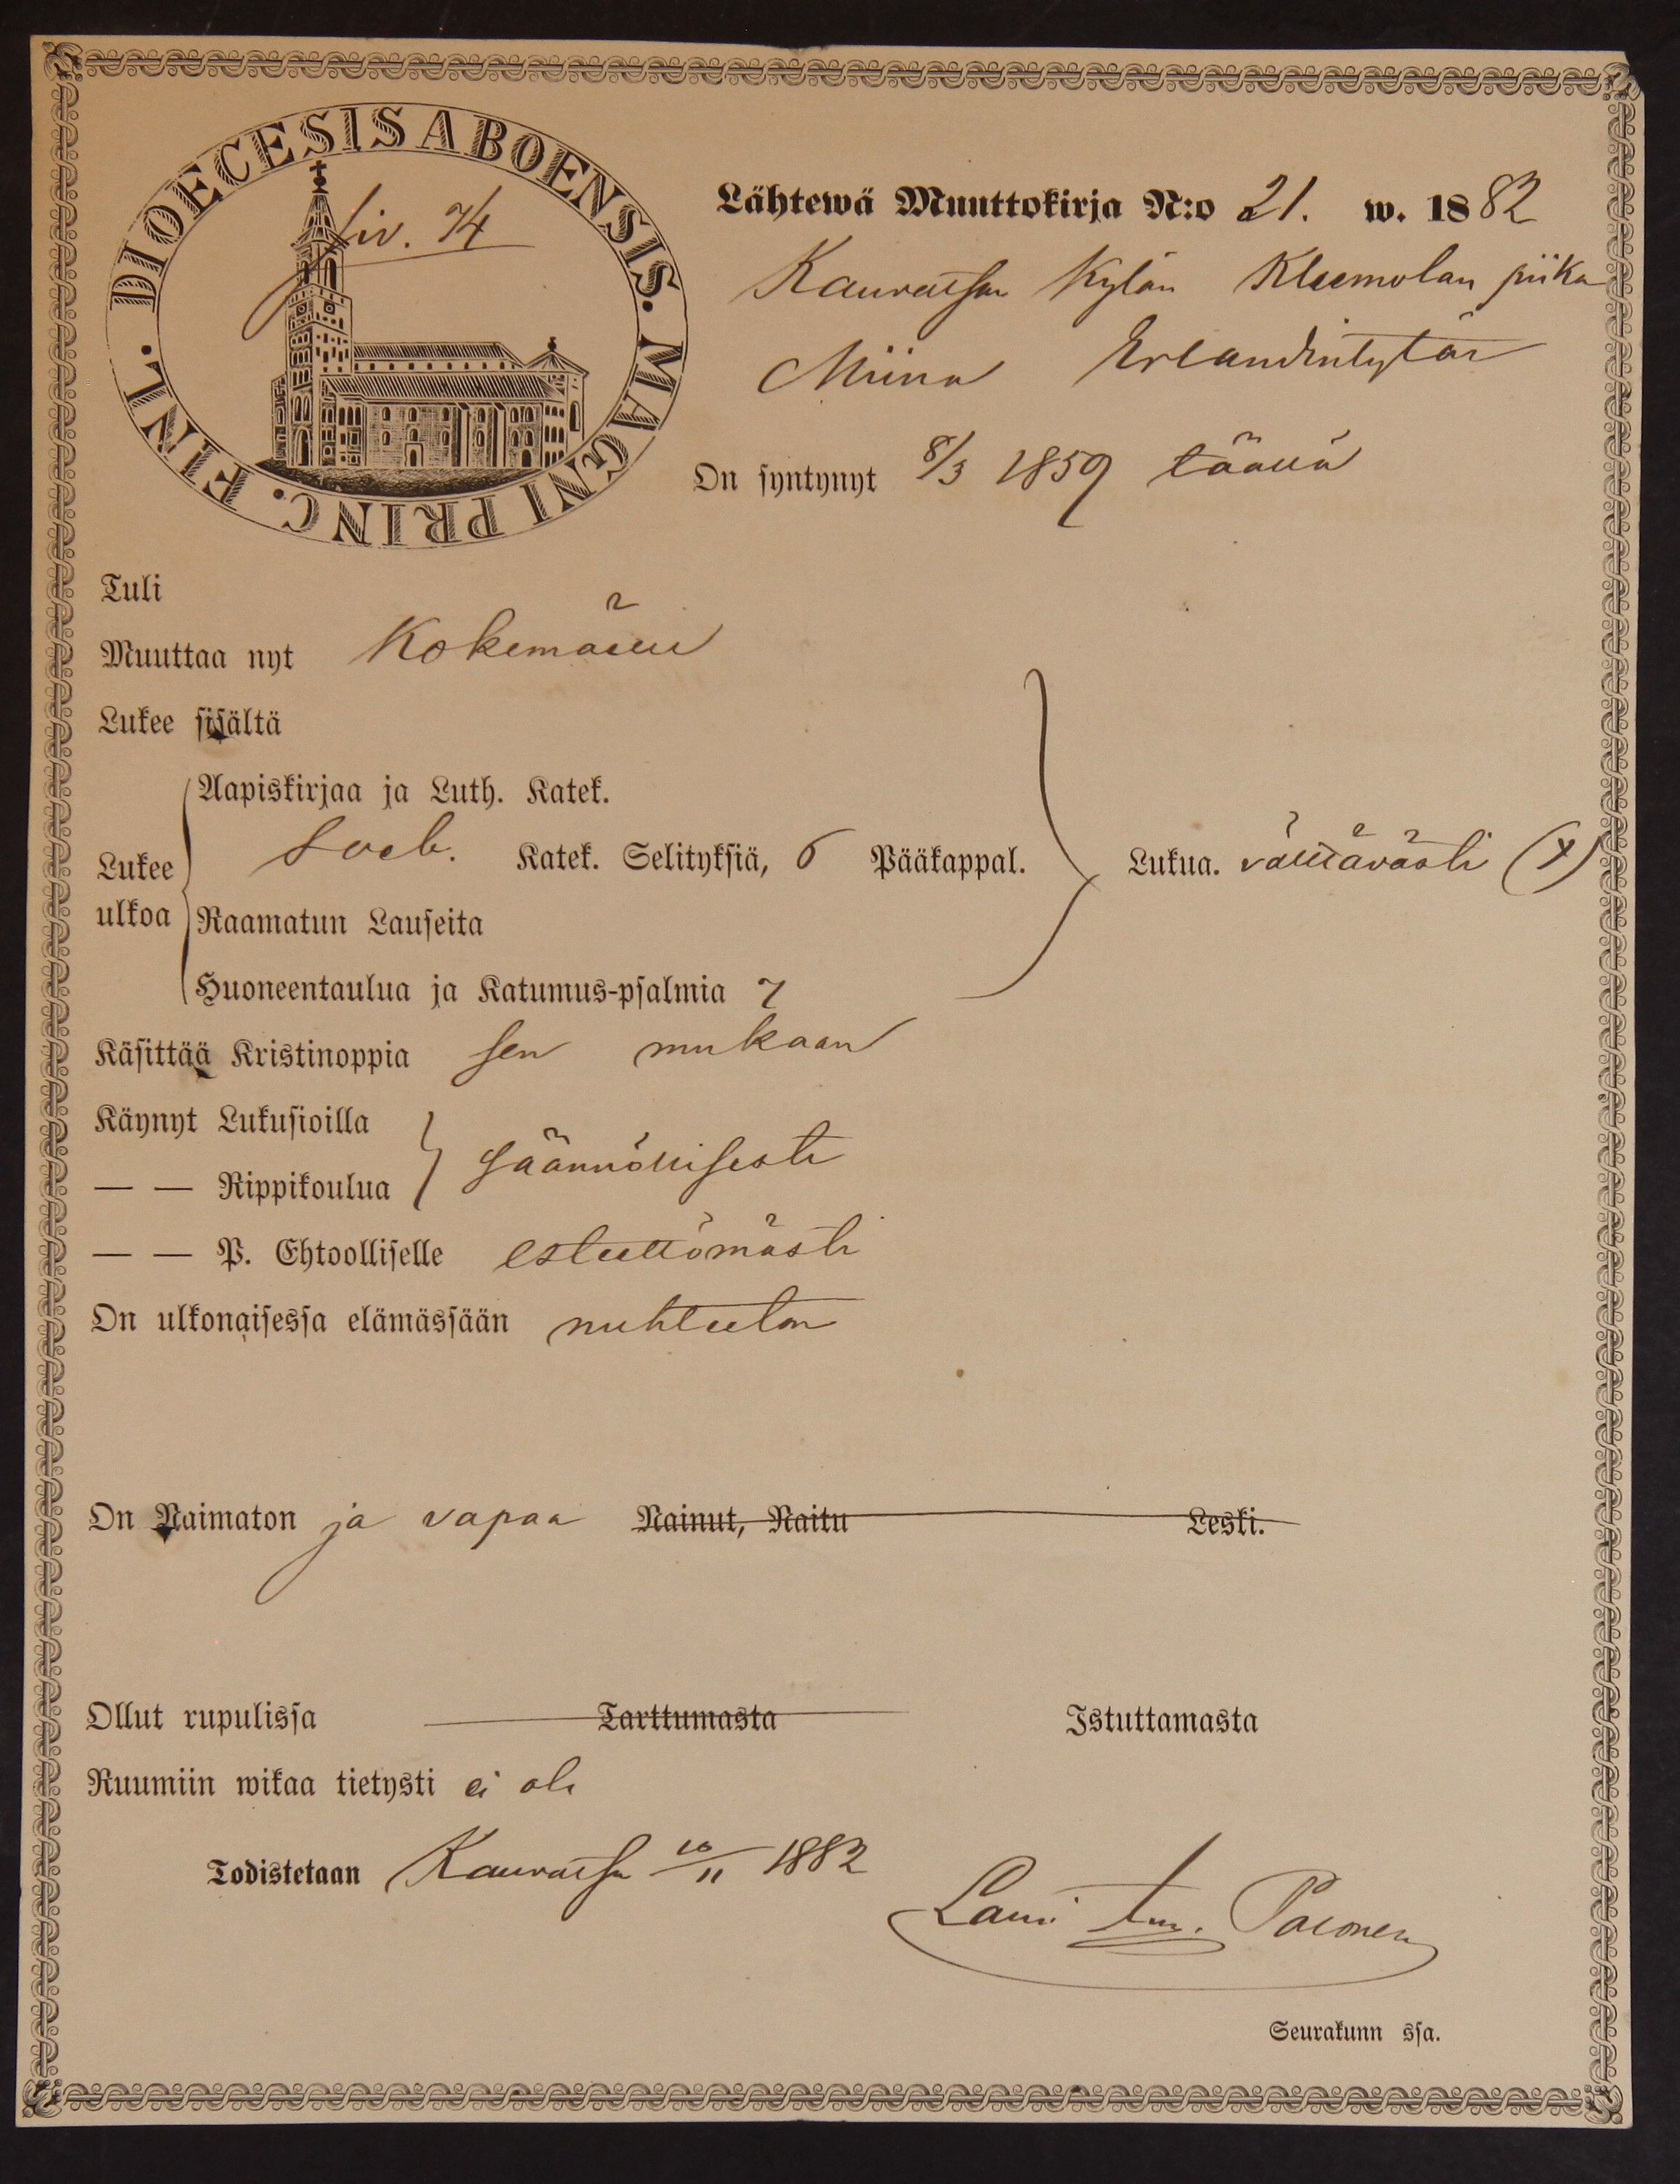 DIOECESIS ABOENSIS. MAGNI PRINC. FINL.
siv. 74
Lähtewä Muuttokirja N:o 21. w. 1882
Kauvatsan Kylän Kleemolan piika
Miina Erlandintytär
On syntynyt 8/3 1859 täällä
Tuli
Muuttaa nyt Kokemäelle
Lukee sisältä
Aapiskirjaa ja Luth. Katek.
Lukee ulkoa
Soeb. Katek. Selityksiä, 6 Pääkappal.
Lukua. välttävästi (x)
Raamatun Lauseita
Huoneentaulua ja Katumus-psalmia 7
Käsittää Kristinoppia sen mukaan
Käynyt Lukusioilla
säännöllisesti
— — Rippikoulua
— — P. Ehtoolliselle esteettömästi
On ulkonaisessa elämässään nuhteeton
On Naimaton ja vapaa Nainut, Naitu Leski.
Ollut rupulissa Tarttumasta Istuttamasta
Ruumiin wikaa tietysti ei ole
Todistetaan Kauvatsa 10/11 1882
Lauri Palonen
Seurakunn ssa.